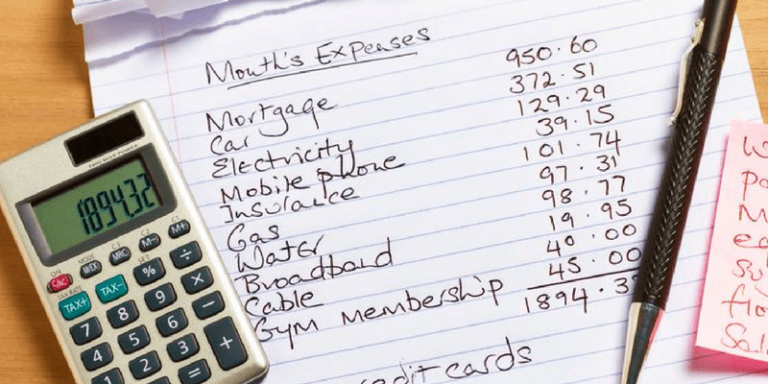 Month's Expenses
Mortgage 950.60
Car 372.51
Electricity 129.29
Mobile phone 39.15
Insurance 101.74
Gas 97.31
Water 98.77
Broadband 19.95
Cable 40.00
Gym Membership 45.00
1894.3
credit cards
1894.32
MRC M- M+
TAX+ TAX- % ÷
7 8 9 ×
4 5 6 −
1 2 3 +
=